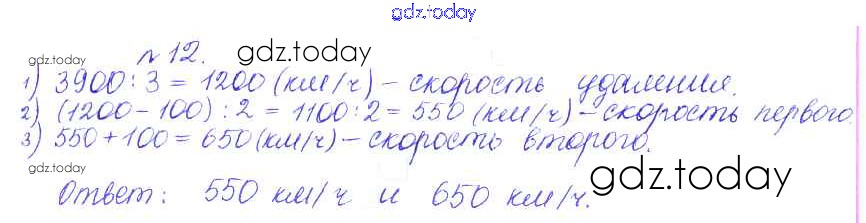 gdz.today
№ 12.
gdz.today
gdz.today
1) 3900 : 3 = 1200 (км/ч) – скорость удаления.
2) (1200 – 100) : 2 = 1100 : 2 = 550 (км/ч) – скорость первого.
3) 550 + 100 = 650 (км/ч) – скорость второго.
gdz.today
gdz.today
Ответ: 550 км/ч и 650 км/ч.